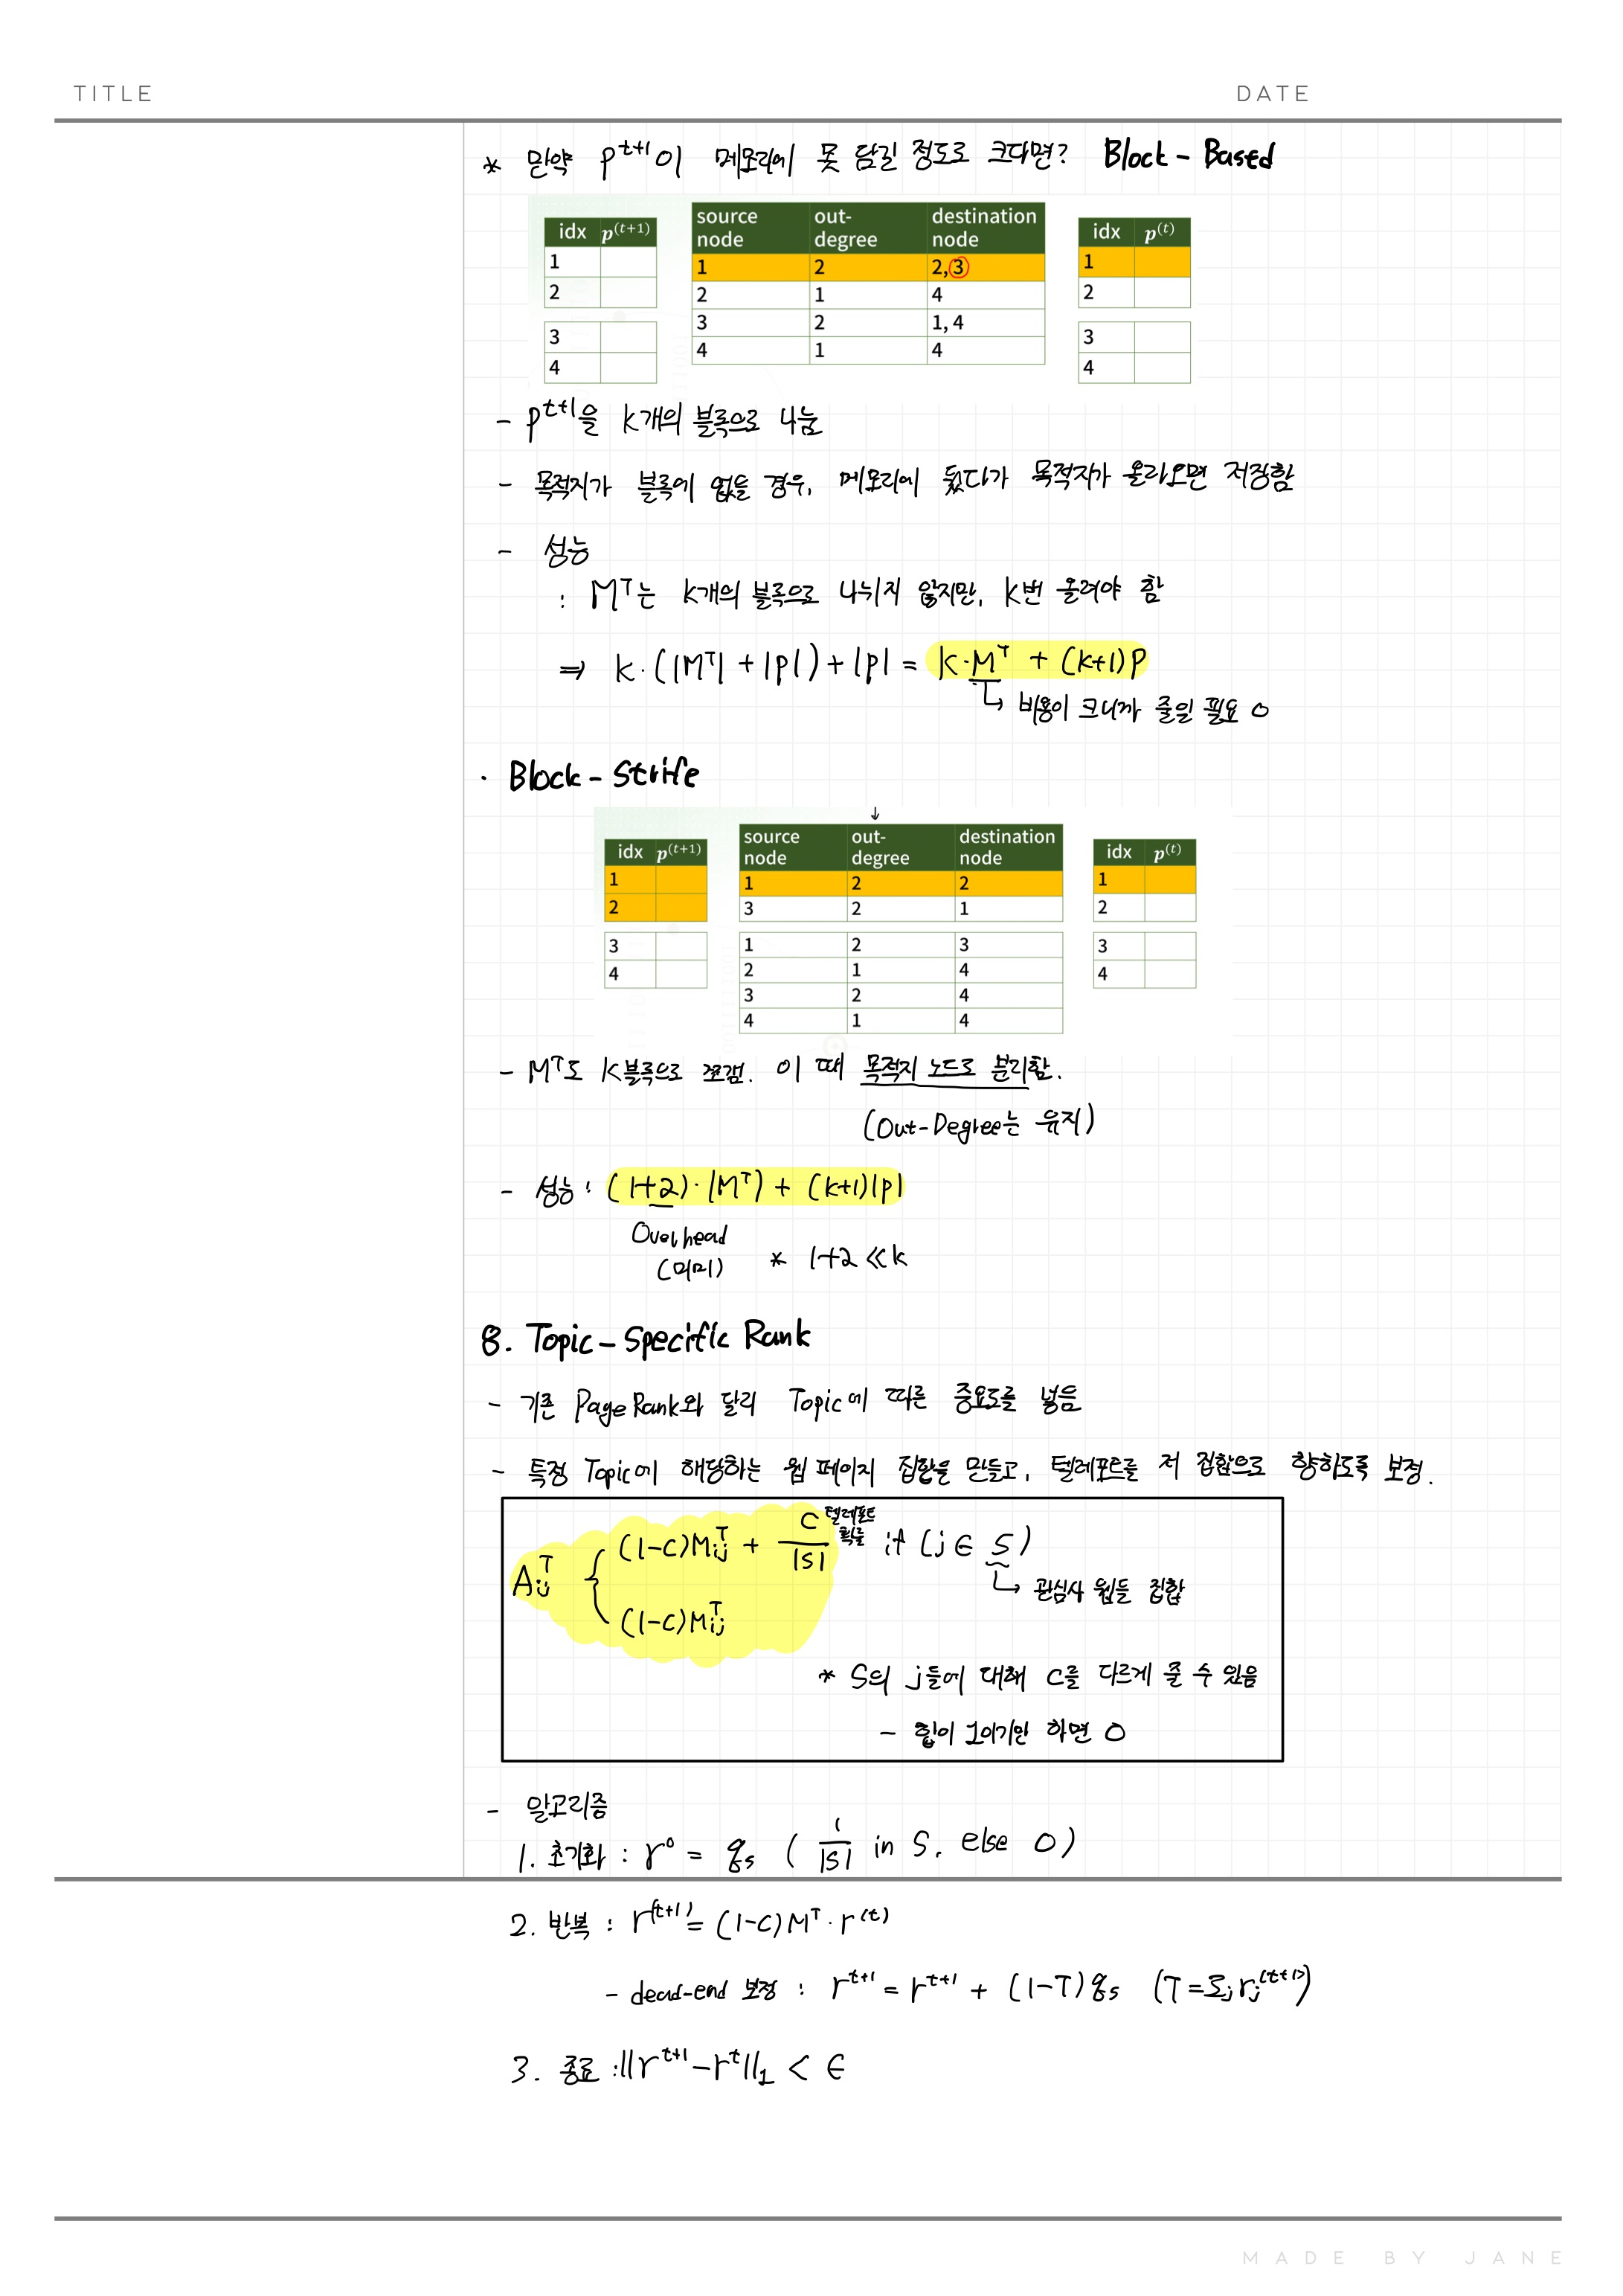 TITLE DATE
* 만약 p^{t+1}이 메모리에 못 담길 정도로 크다면? Block-Based
idx p^{(t+1)}
1
2
3
4
source node out-degree destination node
1 2 2, 3
2 1 4
3 2 1, 4
4 1 4
idx p^{(t)}
1
2
3
4
- p^{t+1}을 k개의 블록으로 나눔
- 목적지가 블록에 없을 경우, 메모리에 뒀다가 목적지가 올라오면 저장함
- 성능
: M^T는 k개의 블록으로 나뉘지 않지만, k번 올려야 함
⇒ k·(|M^T| + |p|) + |p| = k·M^T + (k+1)p
↳ 비용이 크니까 줄일 필요 O
· Block-Strife
idx p^{(t+1)}
1
2
3
4
↓
source node out-degree destination node
1 2 2
3 2 1
1 2 3
2 1 4
3 2 4
4 1 4
idx p^{(t)}
1
2
3
4
- M^T도 k블록으로 쪼갬. 이 때 목적지 노드로 분리함.
(Out-Degree는 유지)
- 성능 : (1+2)·|M^T) + (k+1)|p|
Overhead
(미미) * 1+2 ≪ k
8. Topic-Specific Rank
- 기존 PageRank와 달리 Topic에 따른 중요도를 넣음
- 특정 Topic에 해당하는 웹 페이지 집합을 만들고, 텔레포트를 저 집합으로 향하도록 보정.
A_{ij}^T { (1-c)M_{ij}^T + c/|S| 텔레포트 확률 if (j ∈ S)
↳ 관심사 웹들 집합
(1-c)M_{ij}^T
* S의 j들에 대해 c를 다르게 줄 수 있음
- 합이 1이기만 하면 O
- 알고리즘
1. 초기화 : r^0 = q_s ( 1/|S| in S, else 0)
2. 반복 : r^{(t+1)} = (1-c)M^T·r^{(t)}
- dead-end 보정 : r^{t+1} = r^{t+1} + (1-T)q_s (T = Σ_j r_j^{(t+1)})
3. 종료 : ||r^{t+1} - r^t||_1 < ε
MADE BY JANE